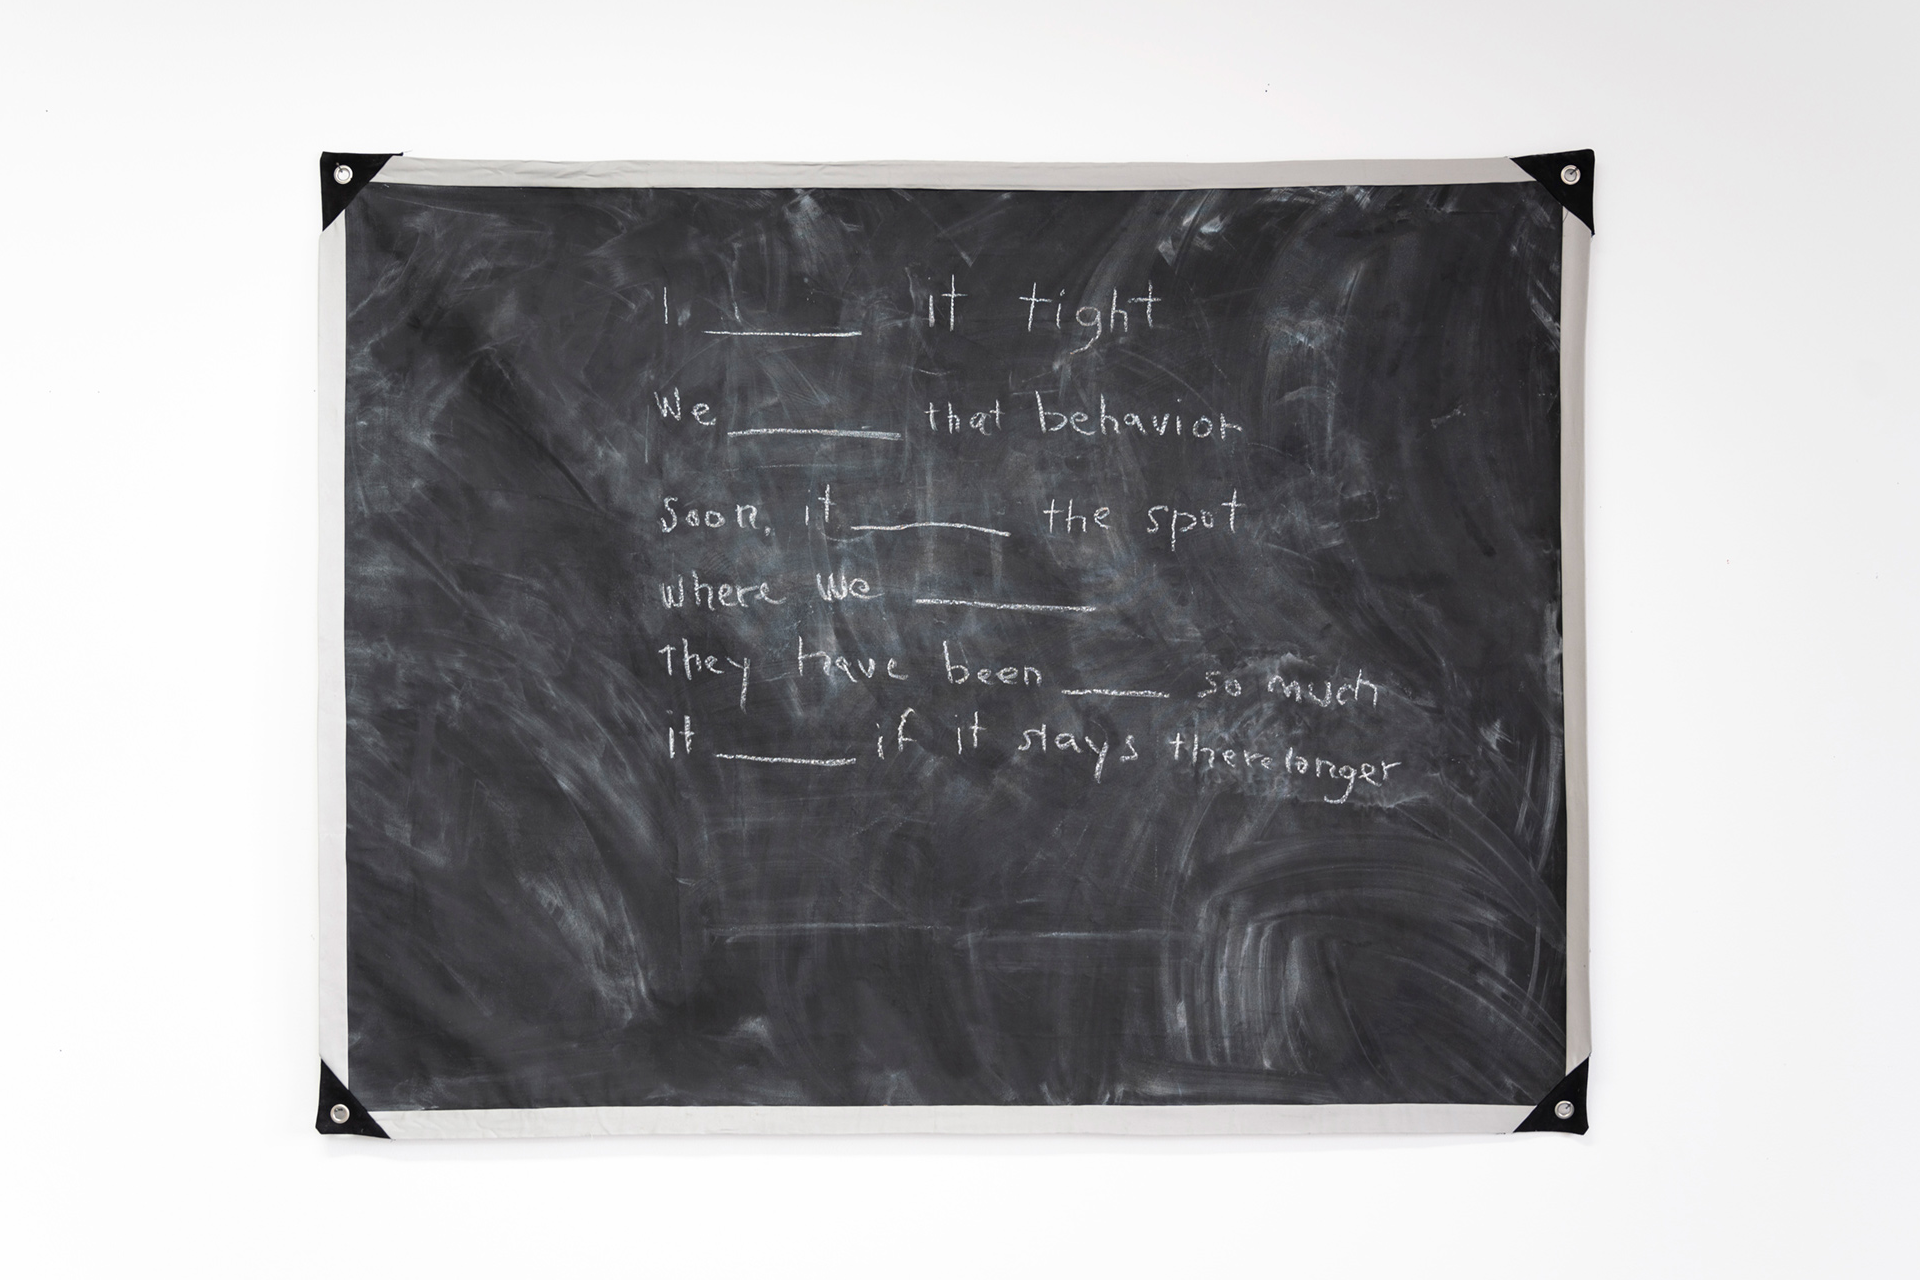 I ______ it tight
We ______ that behavior
Soon, it ______ the spot
where we ______
they have been ____ so much
it _____ if it stays there longer